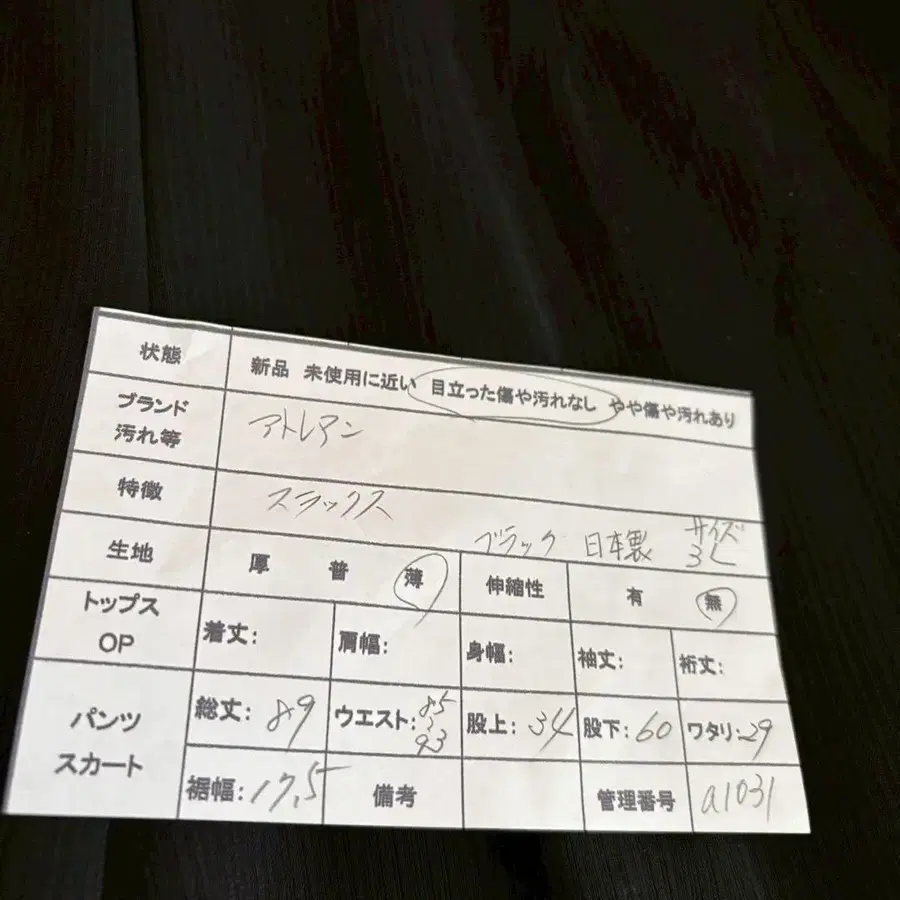 状態 新品 未使用に近い 目立った傷や汚れなし やや傷や汚れあり
ブランド
汚れ等
アトレアン
特徴 スラックス
ブラック 日本製 サイズ
3L
生地 厚 普 薄 伸縮性 有 無
トップス
OP
着丈: 肩幅: 身幅: 袖丈: 裄丈:
パンツ
スカート
総丈: 89 ウエスト: 85~93 股上: 34 股下: 60 ワタリ: 29
裾幅: 17.5 備考 管理番号 a1031